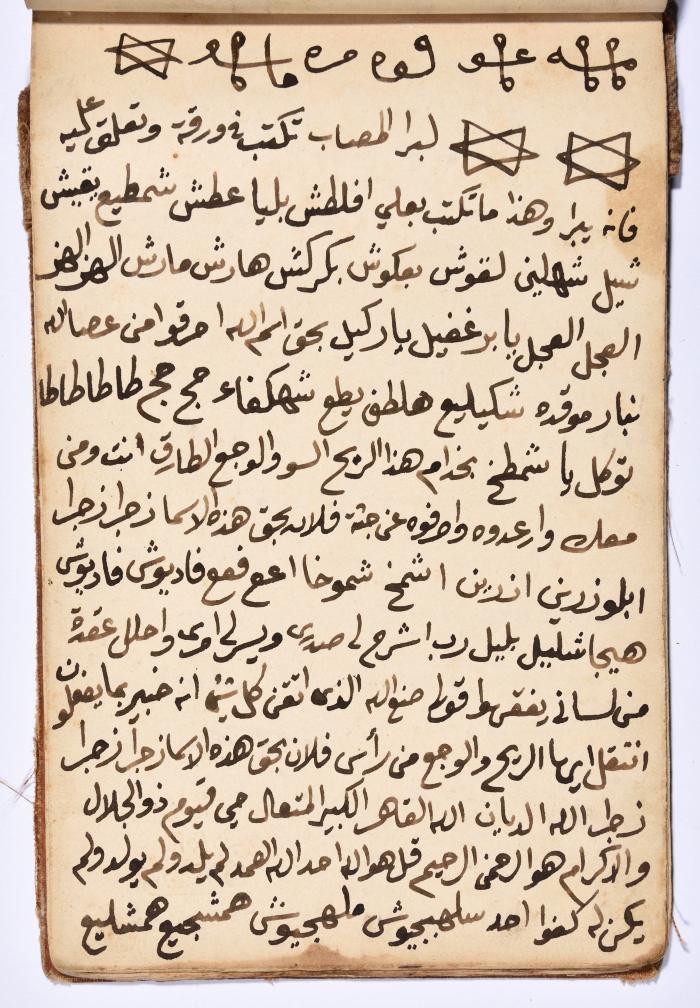 لبرا المصاب تكتب في ورقة وتعلق عليه
فانه يبرا وهذا ما تكتب بعلي افلطش بليا عطش شمطيع بقبش
شيل شهليني لقوش بعكوش بكركش هارش مارش الهز الهز
العجل العجل يا برغفيل يا ركيل بحق اسم الله احرقوا من عصا الله
بنار موقده شكيليع هلطف يطع شهكفاء حج حج طاطاطاطا
توكل يا شمطخ بخدام هذا الريح السو والوجع الطارق انت ومن
معك وارعدوه واصرفوه عن جثة فلانه بحق هذه الاسما زجرا زجرا
ابلوزرين ازرين اشمخ شموخا اعع فعع فاديوش فاديوش
هيجا شليل بليل رب اشرح لي صدري ويسر لي امري واحلل عقدة
من لساني يفقهوا قولي صنع الله الذي اتقن كل شيء انه خبير بما يفعلون
انتقل ايها الريح والوجع من رأس فلان بحق هذه الاسما زجرا زجرا
زجر الله الديان الله القاهر الكبير المتعال حي قيوم ذو الجلال
والاكرام هو الرحمن الرحيم قل هو الله احد الله الصمد لم يلد ولم يولد ولم
يكن له كفوا احد سلهبجيوش ملهجيوش همشجيع همشليع